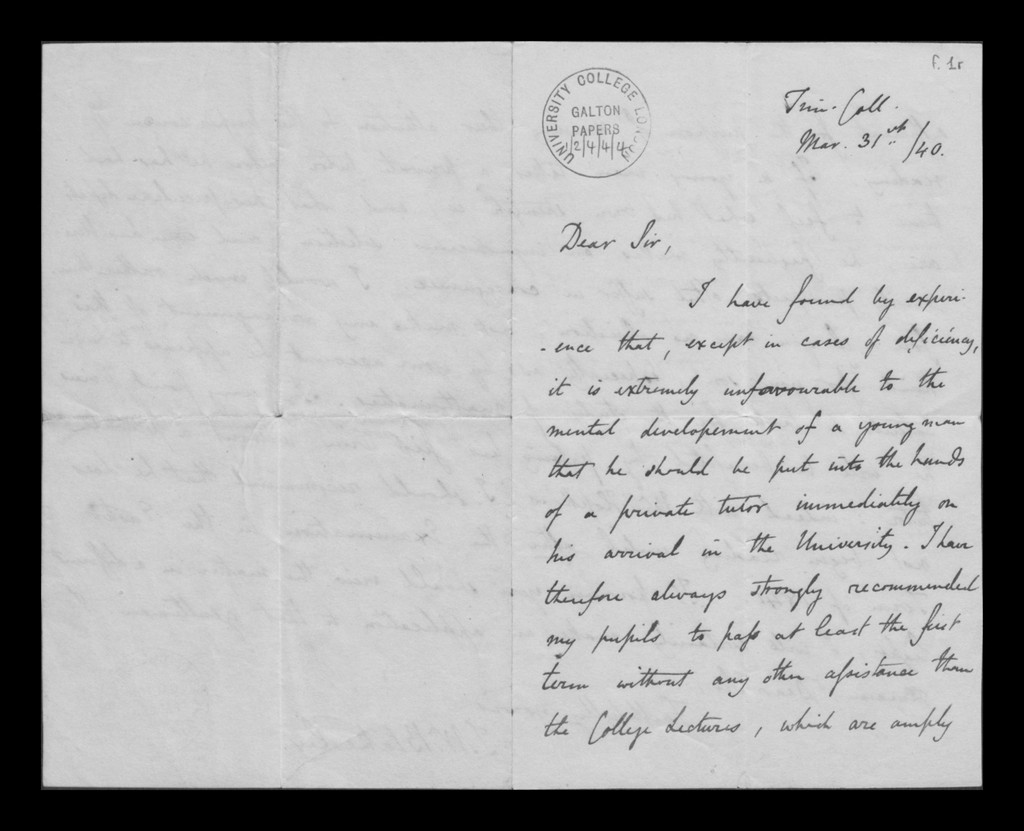 f. 1r
UNIVERSITY COLLEGE LONDON
GALTON
PAPERS
2/4/4/4
Trin. Coll.
Mar. 31st/40.
Dear Sir,
I have found by experi-
-ence that, except in cases of deficiency,
it is extremely unfavourable to the
mental developement of a young man
that he should be put into the hands
of a private tutor immediately on
his arrival in the University. I have
therefore always strongly recommended
my pupils to pass at least the first
term without any other assistance than
the College Lectures, which are amply